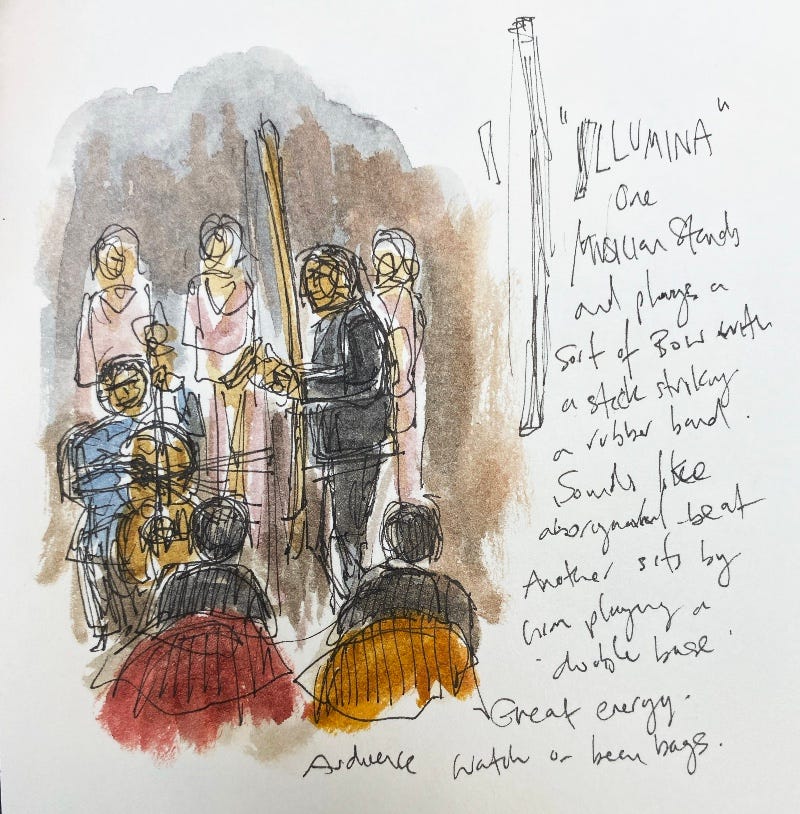 "ILLUMINA"
One
Musician Stands
and plays a
sort of Bow with
a stick striking
a rubber band.
Sounds like
aboryginal beat
Another sits by
him playing a
'double base'
Great energy.
Audience watch on bean bags.